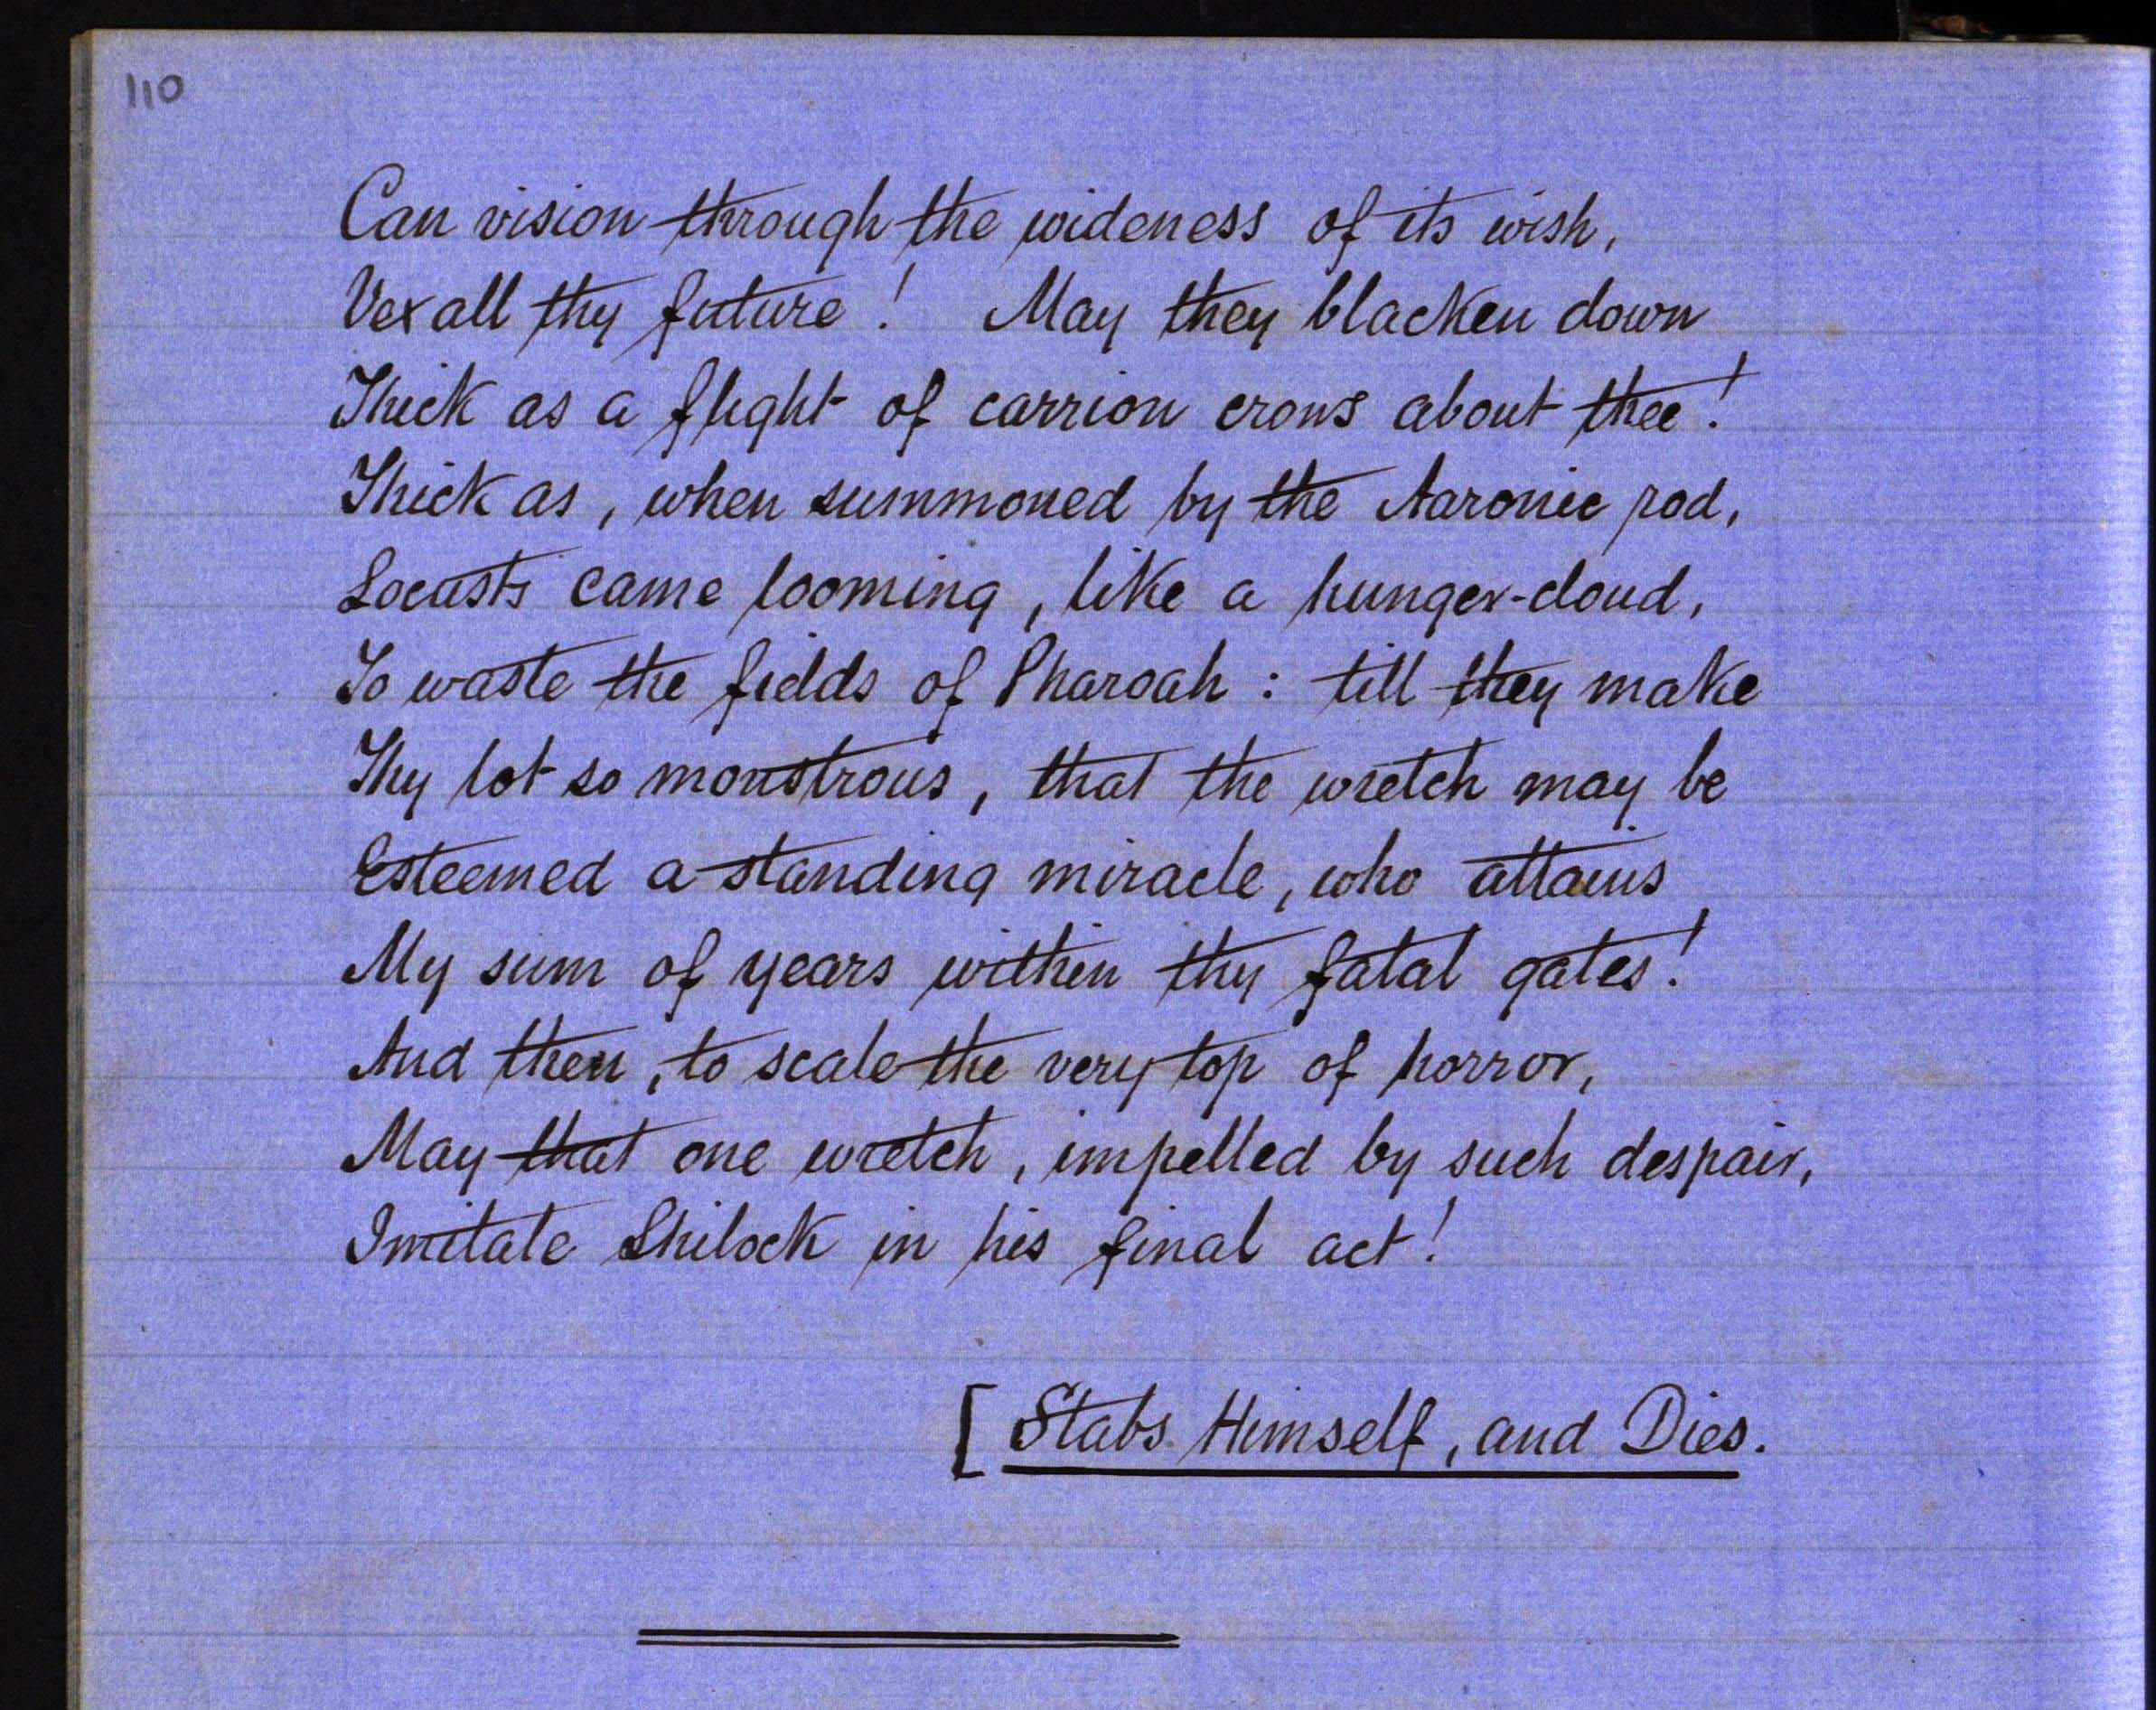 110
Can vision through the wideness of its wish,
Vex all thy future! May they blacken down
Thick as a flight of carrion crows about thee!
Thick as, when summoned by the Aaronic rod,
Locusts came looming, like a hunger-cloud,
To waste the fields of Pharoah: till they make
Thy lot so monstrous, that the wretch may be
Esteemed a standing miracle, who attains
My sum of years within thy fatal gates!
And then, to scale the very top of horror,
May that one wretch, impelled by such despair,
Imitate Shilock in his final act!
[Stabs Himself, and Dies.